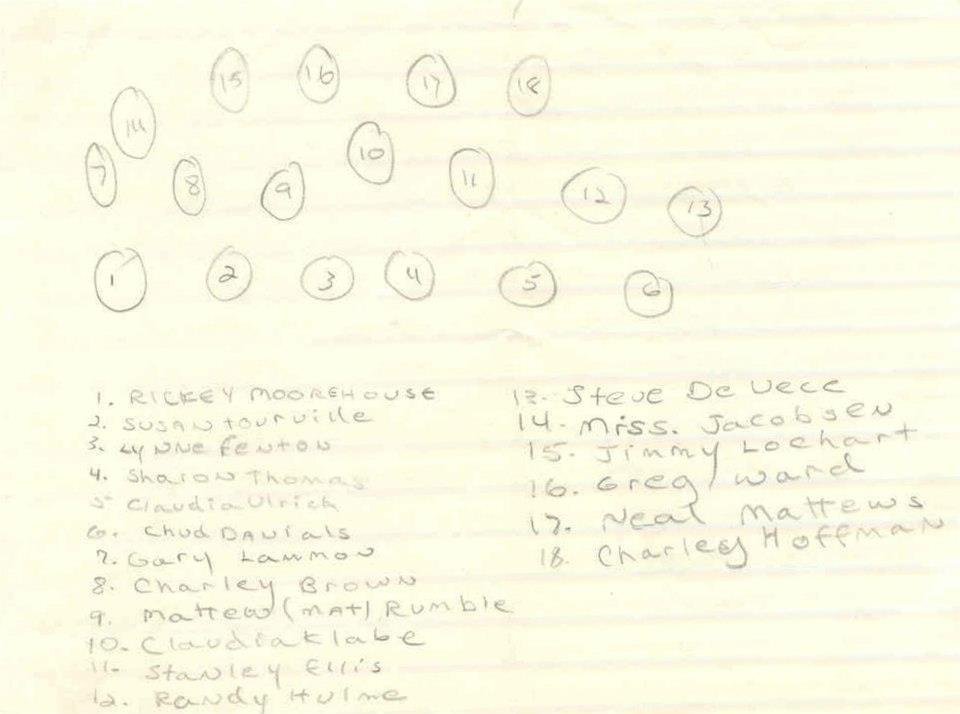 15 16 17 18
14
7 8 9 10 11 12 13
1 2 3 4 5 6
1. RICKEY MOOREHOUSE
2. SUSAN tourville
3. Lynne Fenton
4. Sharon Thomas
5 Claudia Ulrich
6. Chud Danials
7. Gary Lammon
8. Charley Brown
9. Mattew (MAt) Rumble
10. Claudia Klabe
11. Stanley Ellis
12. Randy Hulme
13. Steve De Vece
14. Miss. Jacobsen
15. Jimmy Lochart
16. Greg Ward
17. Neal Mattews
18. Charley Hoffman